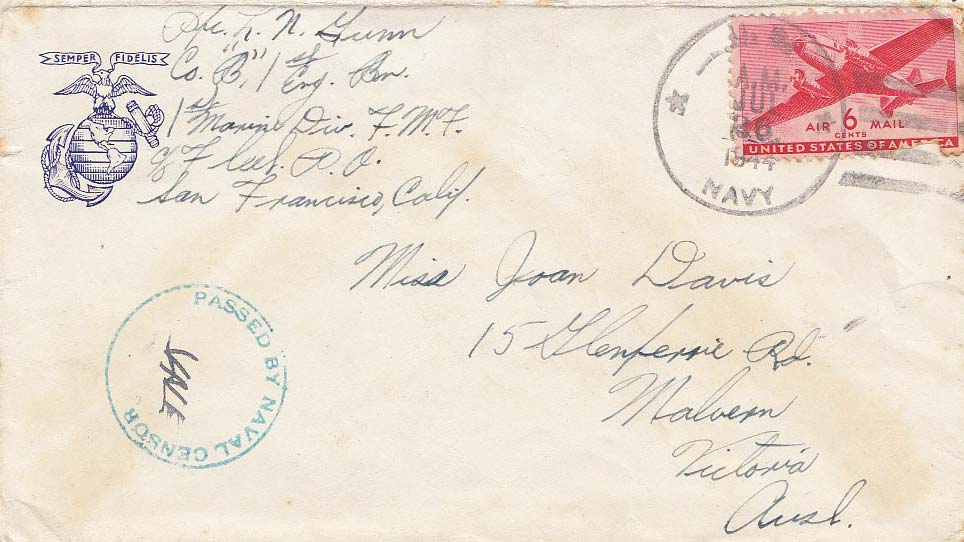 SEMPER FIDELIS
Pfc. L. N. Gunn
Co. "B", 1st Eng. Bn.
1st Marine Div. F.M.F.
℅ Fleet P.O.
San Francisco, Calif.
U.S.
A.M.
30
1944
NAVY
AIR 6 MAIL
CENTS
UNITED STATES OF AMERICA
Miss Joan Davis
15 Glenferrie Rd.
Malvern
Victoria
Ausl.
PASSED BY NAVAL CENSOR